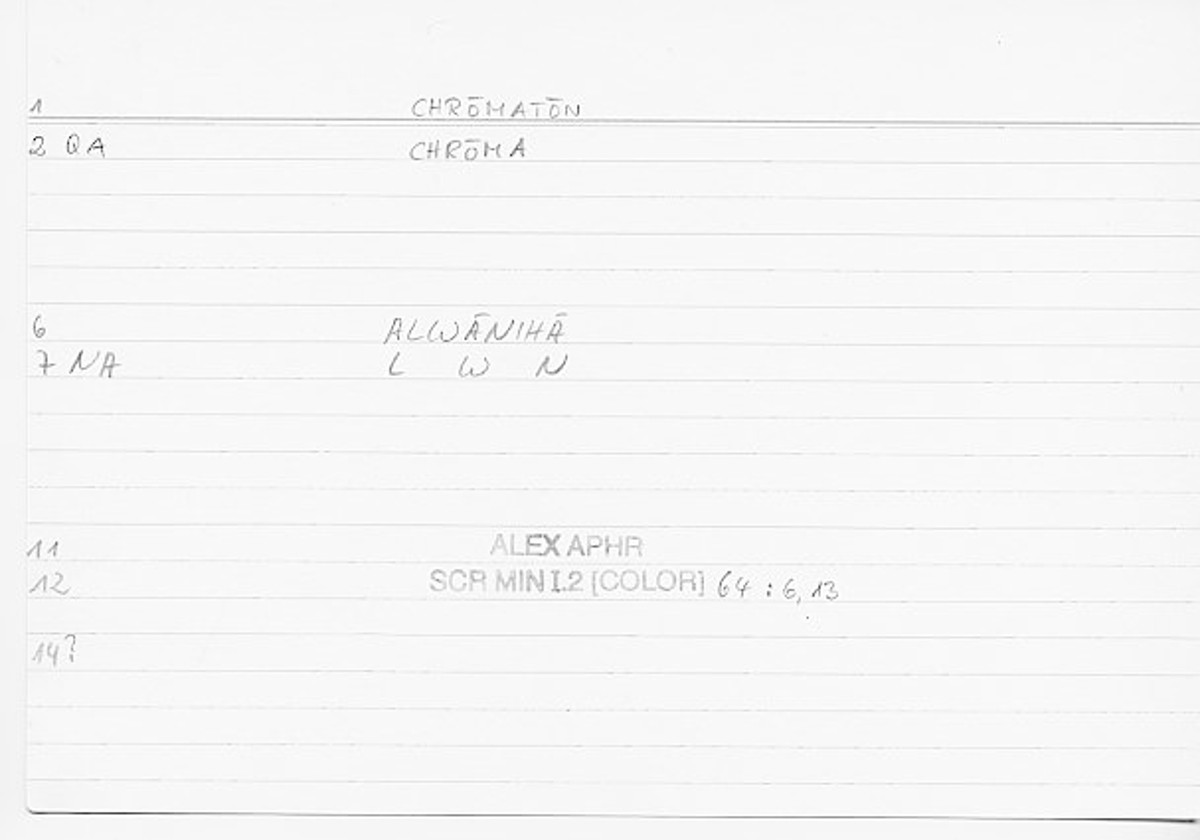 1 CHRŌMATŌN
2 QA CHRŌMA
6 ALWĀNIHĀ
7 NA L W N
11 ALEX APHR
12 SCR MIN I.2 [COLOR] 64 : 6, 13
14?